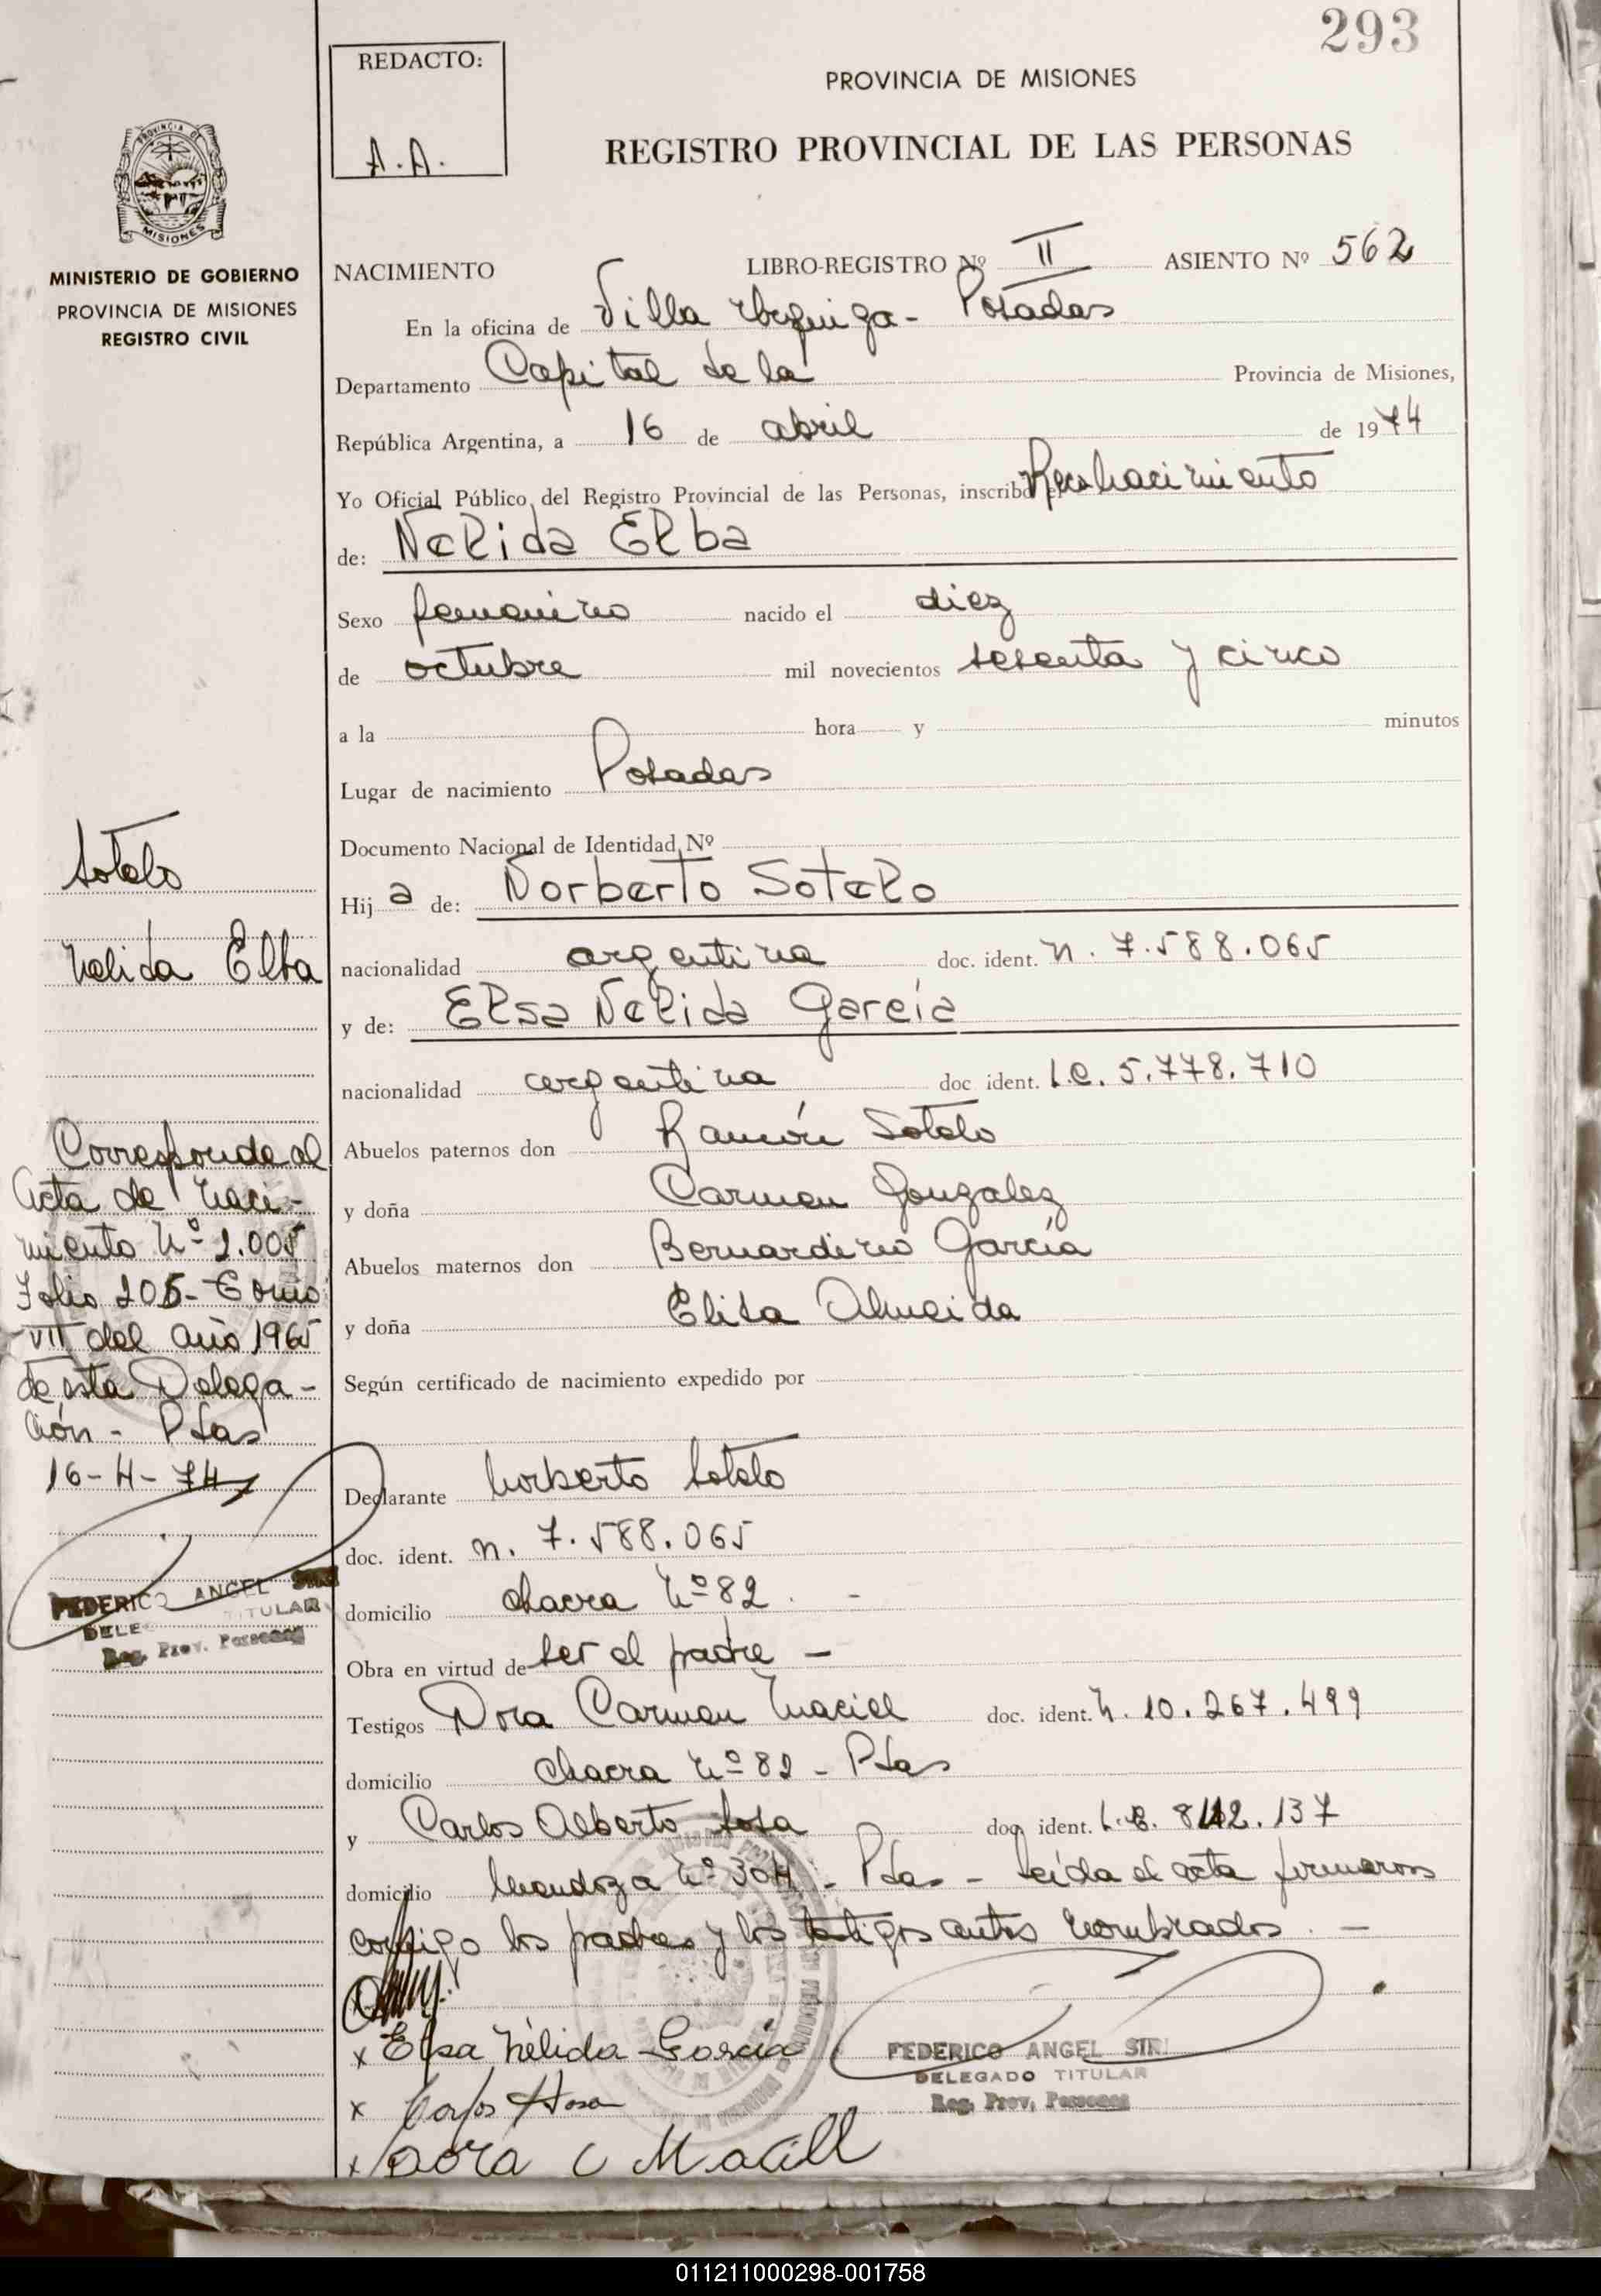 293
REDACTO:
A.A.
PROVINCIA DE MISIONES
REGISTRO PROVINCIAL DE LAS PERSONAS
PROVINCIA DE
MISIONES
MINISTERIO DE GOBIERNO
PROVINCIA DE MISIONES
REGISTRO CIVIL
NACIMIENTO LIBRO-REGISTRO Nº II ASIENTO Nº 562
En la oficina de Villa Urquiza - Posadas
Departamento Capital de la Provincia de Misiones,
República Argentina, a 16 de abril de 1974
Yo Oficial Público del Registro Provincial de las Personas, inscribo el Reconocimiento
de: Nelida Elba
Sexo femenino nacido el diez
de octubre mil novecientos sesenta y cinco
a la hora y minutos
Lugar de nacimiento Posadas
Documento Nacional de Identidad Nº
Hij a de: Norberto Sotelo
nacionalidad argentina doc. ident. n. 7.588.065
y de: Elsa Nelida García
nacionalidad argentina doc ident. L.C. 5.778.710
Abuelos paternos don Ramón Sotelo
y doña Carmen Gonzalez
Abuelos maternos don Bernardino García
y doña Elisa Almeida
Según certificado de nacimiento expedido por
Declarante Norberto Sotelo
doc. ident. n. 7.588.065
domicilio chacra Nº 82. -
Obra en virtud de ser el padre -
Testigos Dora Carmen Maciel doc. ident. n. 10.267.499
domicilio chacra Nº 82 - Pdas
y Carlos Alberto Sosa doc. ident. L.E. 8.112.137
domicilio Mendoza Nº 304 - Pdas - Leída el acta firmaron
conmigo los padres y los testigos antes nombrados. -
x Elsa Nélida García
x Carlos A Sosa
x Dora C Maciel
FEDERICO ANGEL SIRI
DELEGADO TITULAR
Reg. Prov. Personas
Sotelo
Nelida Elba
Corresponde al
acta de naci-
miento Nº 1.005
Folio 205 - Tomo
VII del año 1965
de esta Delega-
ción - Pdas
16-4-74
FEDERICO ANGEL SIRI
DELE TITULAR
Reg. Prov. Personas
011211000298-001758